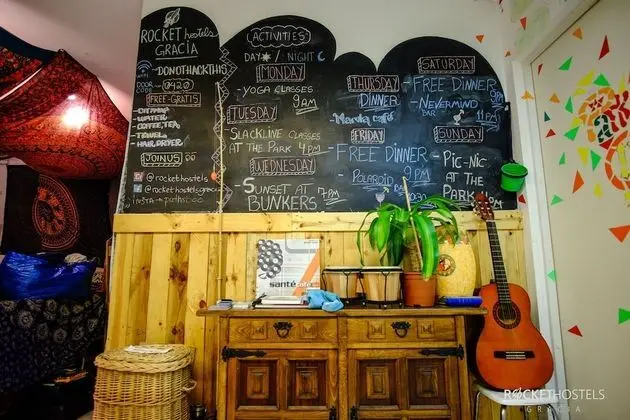 ROCKET hostels
GRACIA
DONOTHACKTHIS
DOOR CODE 0420
FREE-GRATIS
- CITY MAP
- WATER
- COFFEE, TEA
- TOWEL
- HAIR DRYER
JOIN US
@rockethostels
@rockethostelsgracia
ACTIVITIES
DAY NIGHT
MONDAY
- YOGA CLASSES
9AM
TUESDAY
- SLACKLINE CLASSES
AT THE PARK 4PM
WEDNESDAY
- SUNSET AT 7PM
BUNKERS
THURSDAY
DINNER
FRIDAY
- FREE DINNER
9PM
- POLAROID
SATURDAY
- FREE DINNER
9PM
- NEVERMIND
BAR 11PM
SUNDAY
- PIC-NIC
AT THE
PARK
santé café
ROCKETHOSTELS
GRACIA